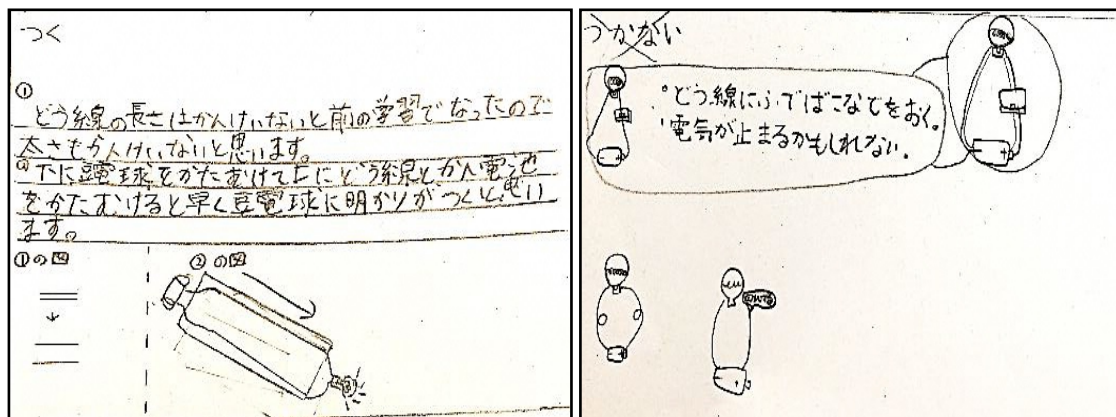 つく
①
どう線の長さはかんけいないと前の学習でなったので
太さもかんけいないと思います。
②下に豆電球をかたむけて上にどう線とかん電池
をかたむけると早く豆電球に明かりがつくと思い
ます。
①の図
②の図
つかない
どう線にふでばこなどをおく。
電気が止まるかもしれない。